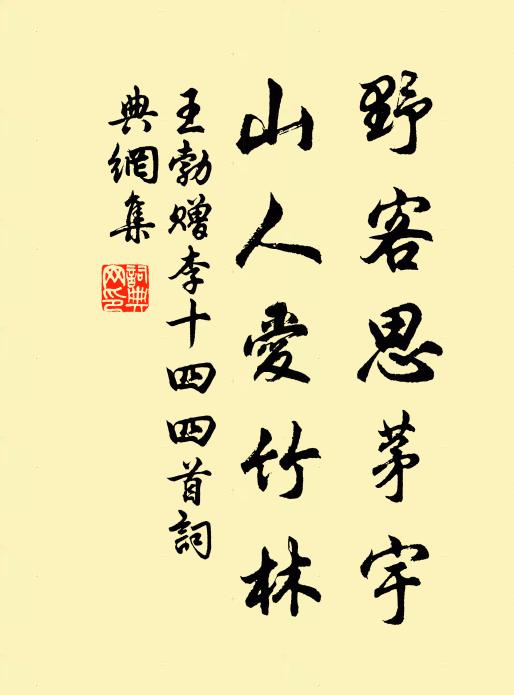 野客思茅宇
山人愛竹林
王勃贈李十四四首詞
典網集
詞典網印